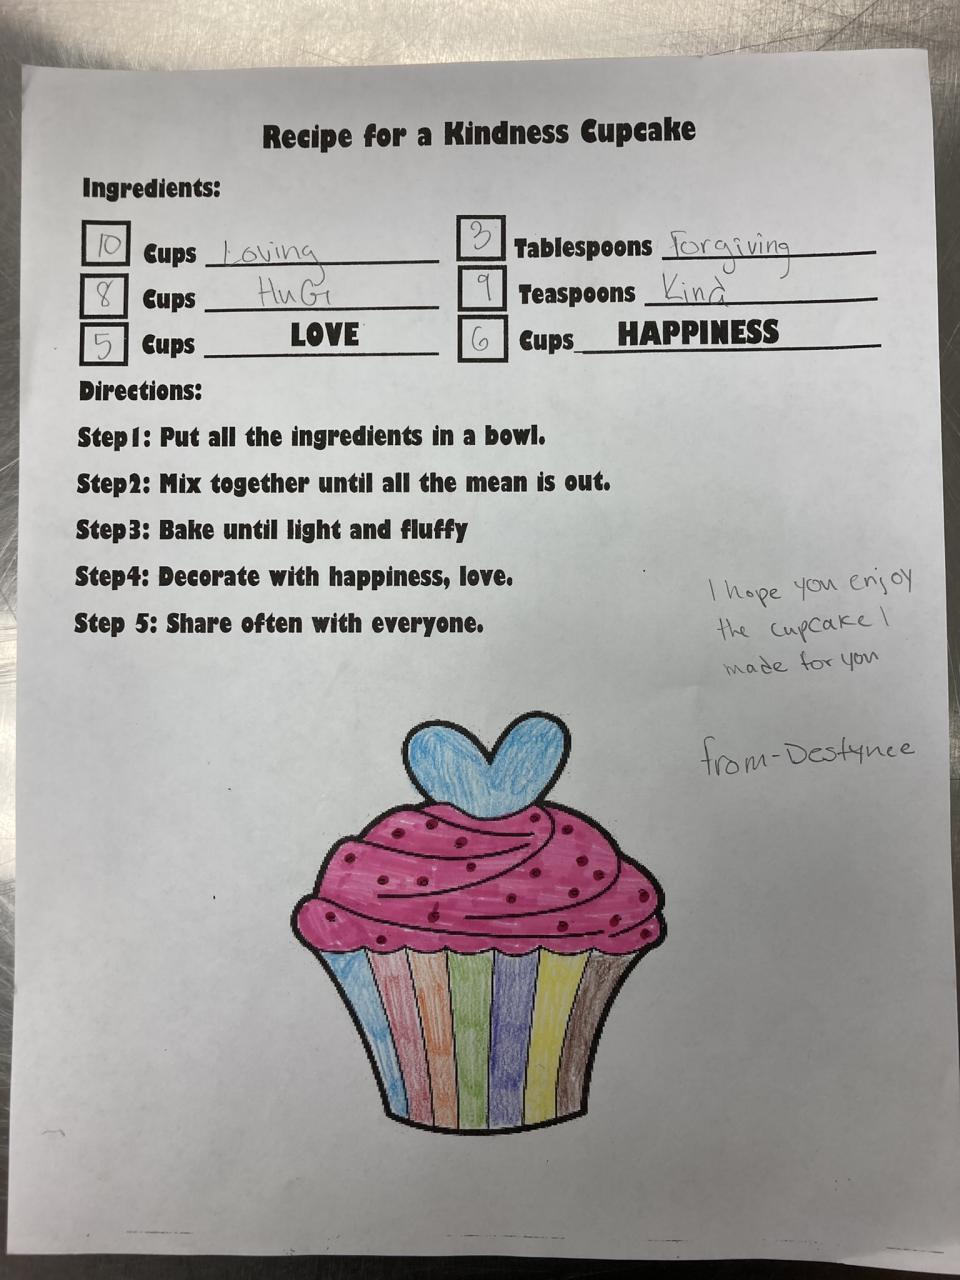 Recipe for a Kindness Cupcake
Ingredients:
10 Cups Loving 3 Tablespoons Forgiving
8 Cups HuG 9 Teaspoons Kind
5 Cups LOVE 6 Cups HAPPINESS
Directions:
Step1: Put all the ingredients in a bowl.
Step2: Mix together until all the mean is out.
Step3: Bake until light and fluffy
Step4: Decorate with happiness, love.
Step 5: Share often with everyone.
I hope you enjoy
the cupcake I
made for you
from-Destynee